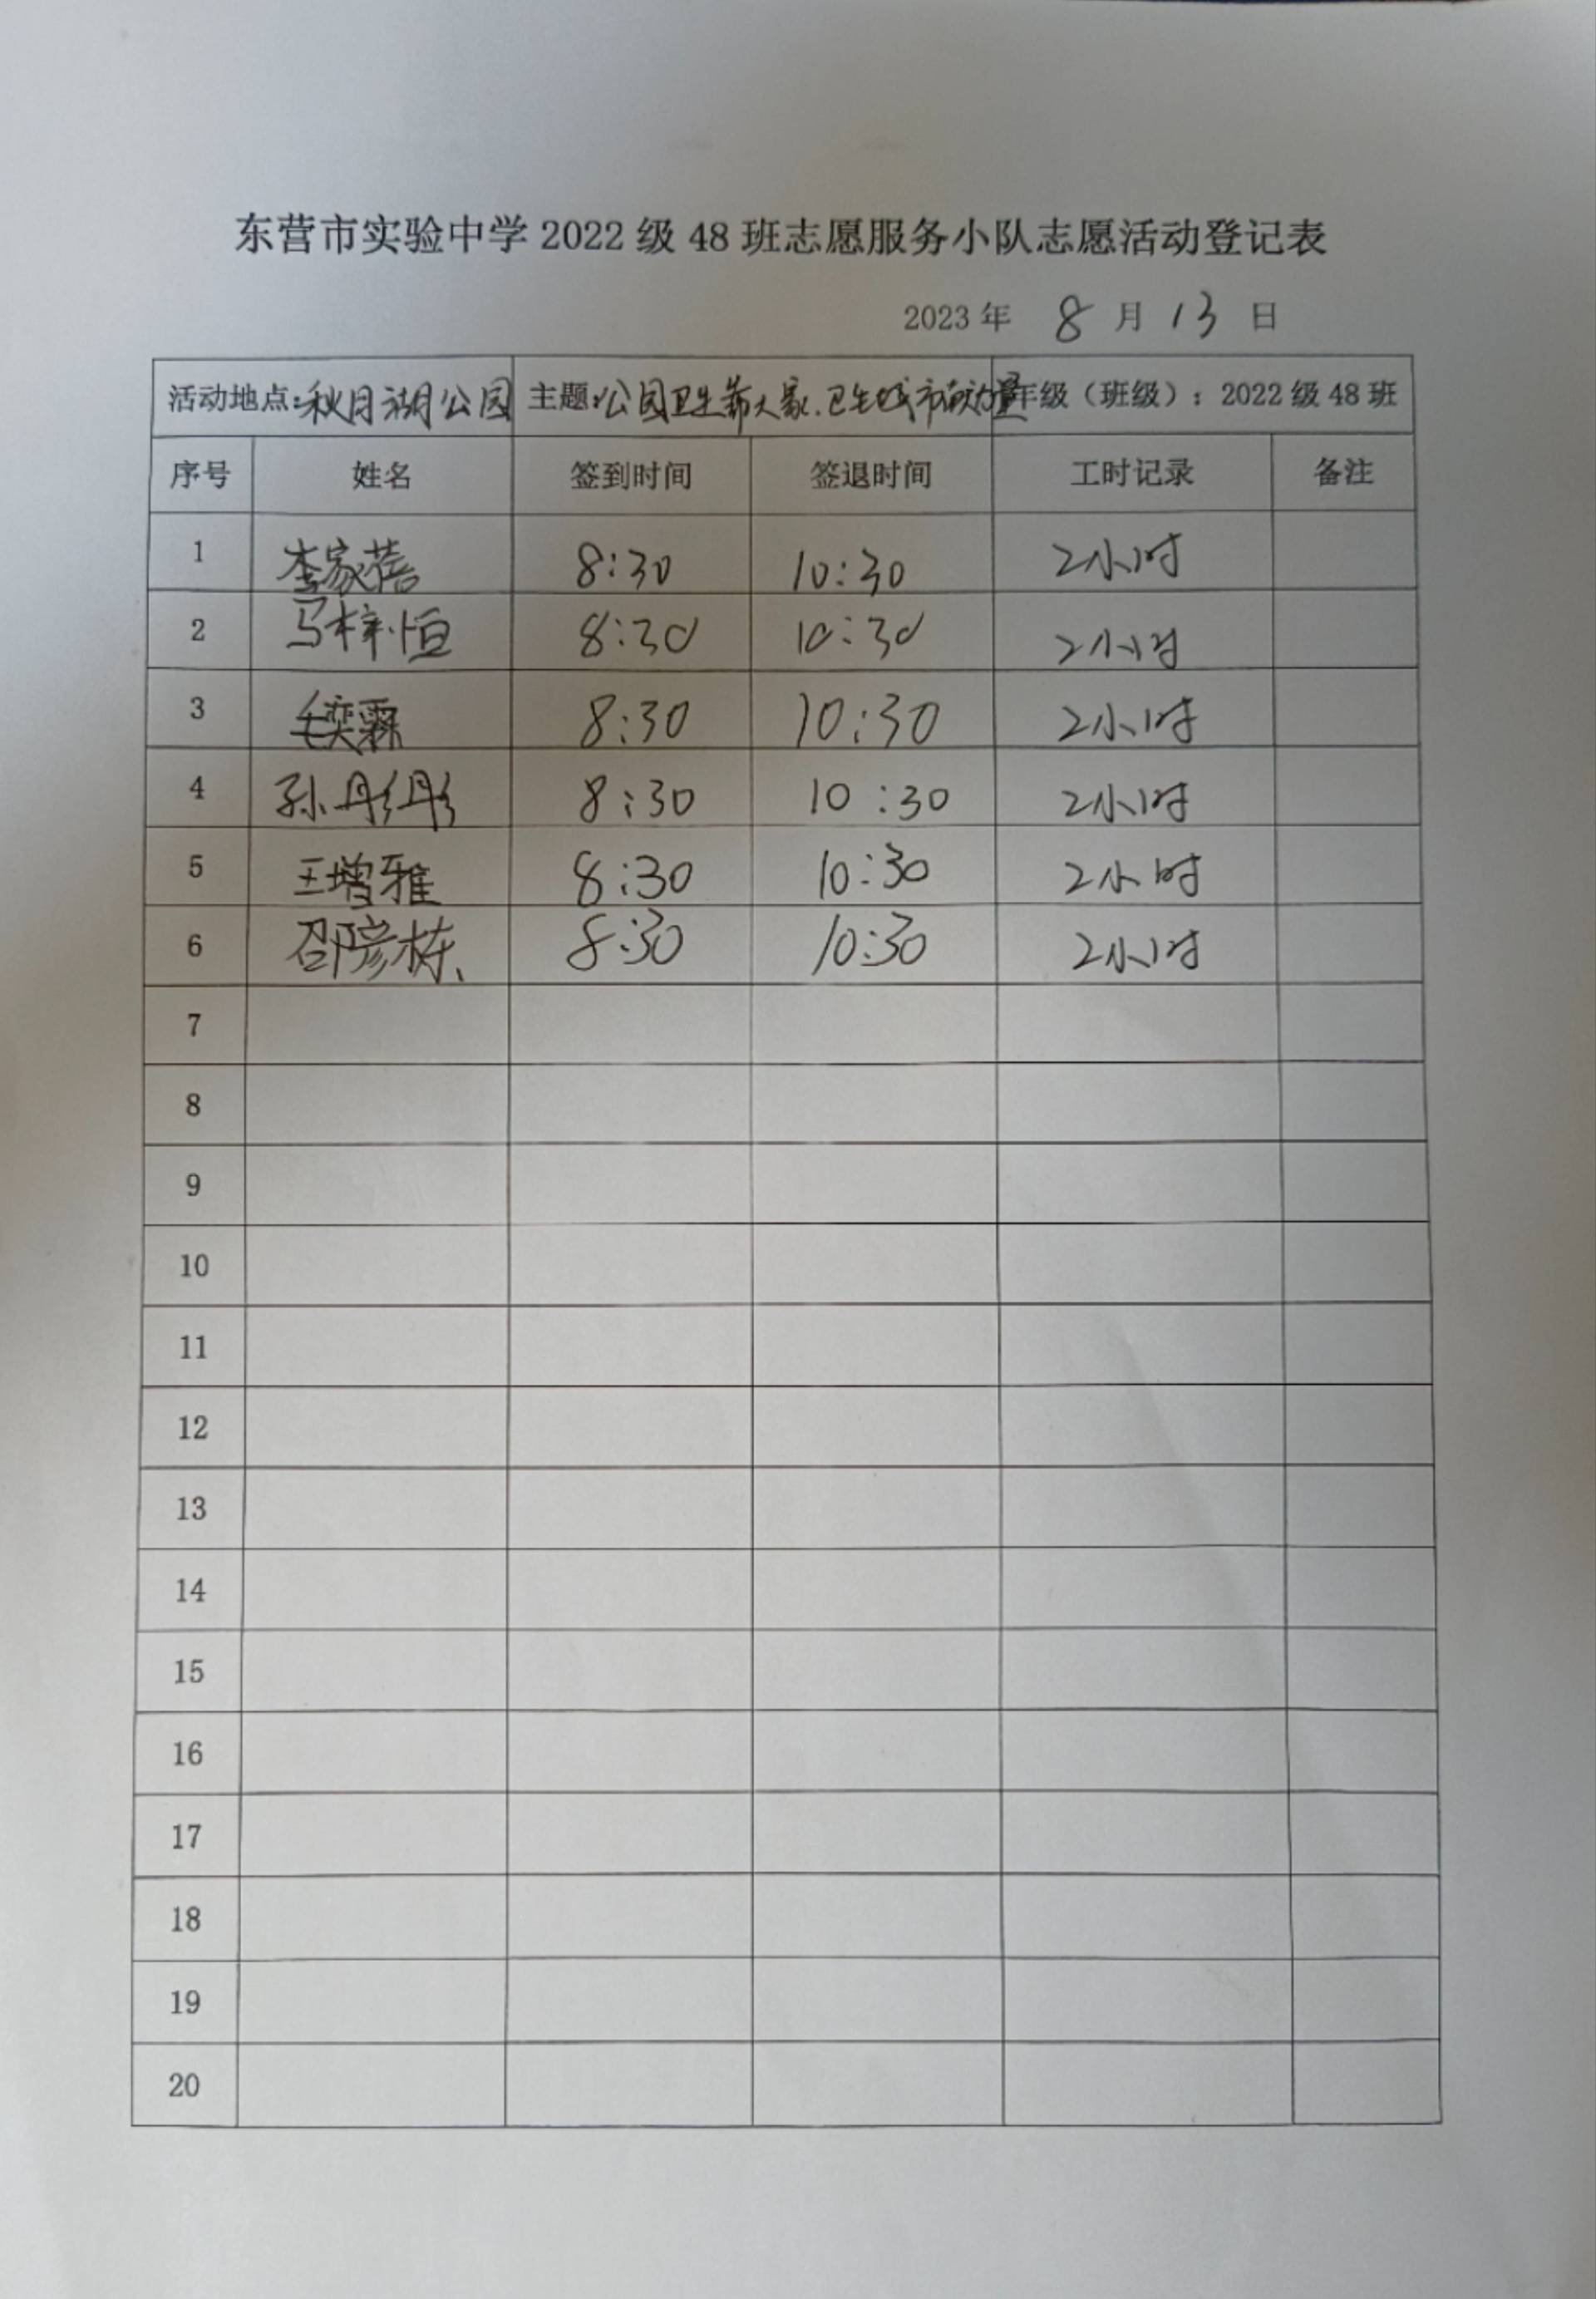 东营市实验中学 2022 级 48 班志愿服务小队志愿活动登记表
2023 年 8 月 13 日
活动地点:秋月湖公园 主题:公园卫生靠大家.卫生城市献力量 年级（班级）: 2022 级 48 班
序号 姓名 签到时间 签退时间 工时记录 备注
1 李家蓓 8:30 10:30 2小时
2 马梓恒 8:30 10:30 2小时
3 毛奕霖 8:30 10:30 2小时
4 孙彤彤 8:30 10:30 2小时
5 王增雅 8:30 10:30 2小时
6 邵彦栋 8:30 10:30 2小时
7
8
9
10
11
12
13
14
15
16
17
18
19
20